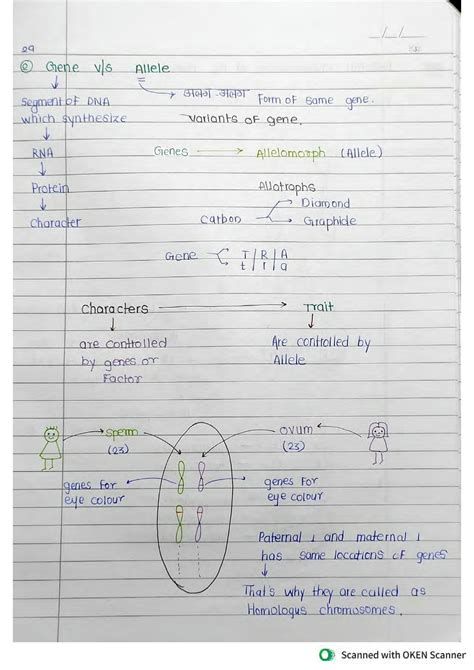 29
② Gene V/s Allele
Segment of DNA which synthesize
→ अलग-अलग Form of same gene.
Variants of gene.
RNA
Genes → Allelomorph (Allele)
Protein
Character
Allotrophs
Carbon
Diamond
Graphide
Gene
T | R | A
t | r | a
Characters → Trait
are controlled
by genes or
Factor
Are controlled by
Allele
sperm
(23)
ovum
(23)
genes for
eye colour
genes for
eye colour
Paternal 1 and maternal 1
has same locations of genes
That's why they are called as
Homologus chromosomes.
Scanned with OKEN Scanner